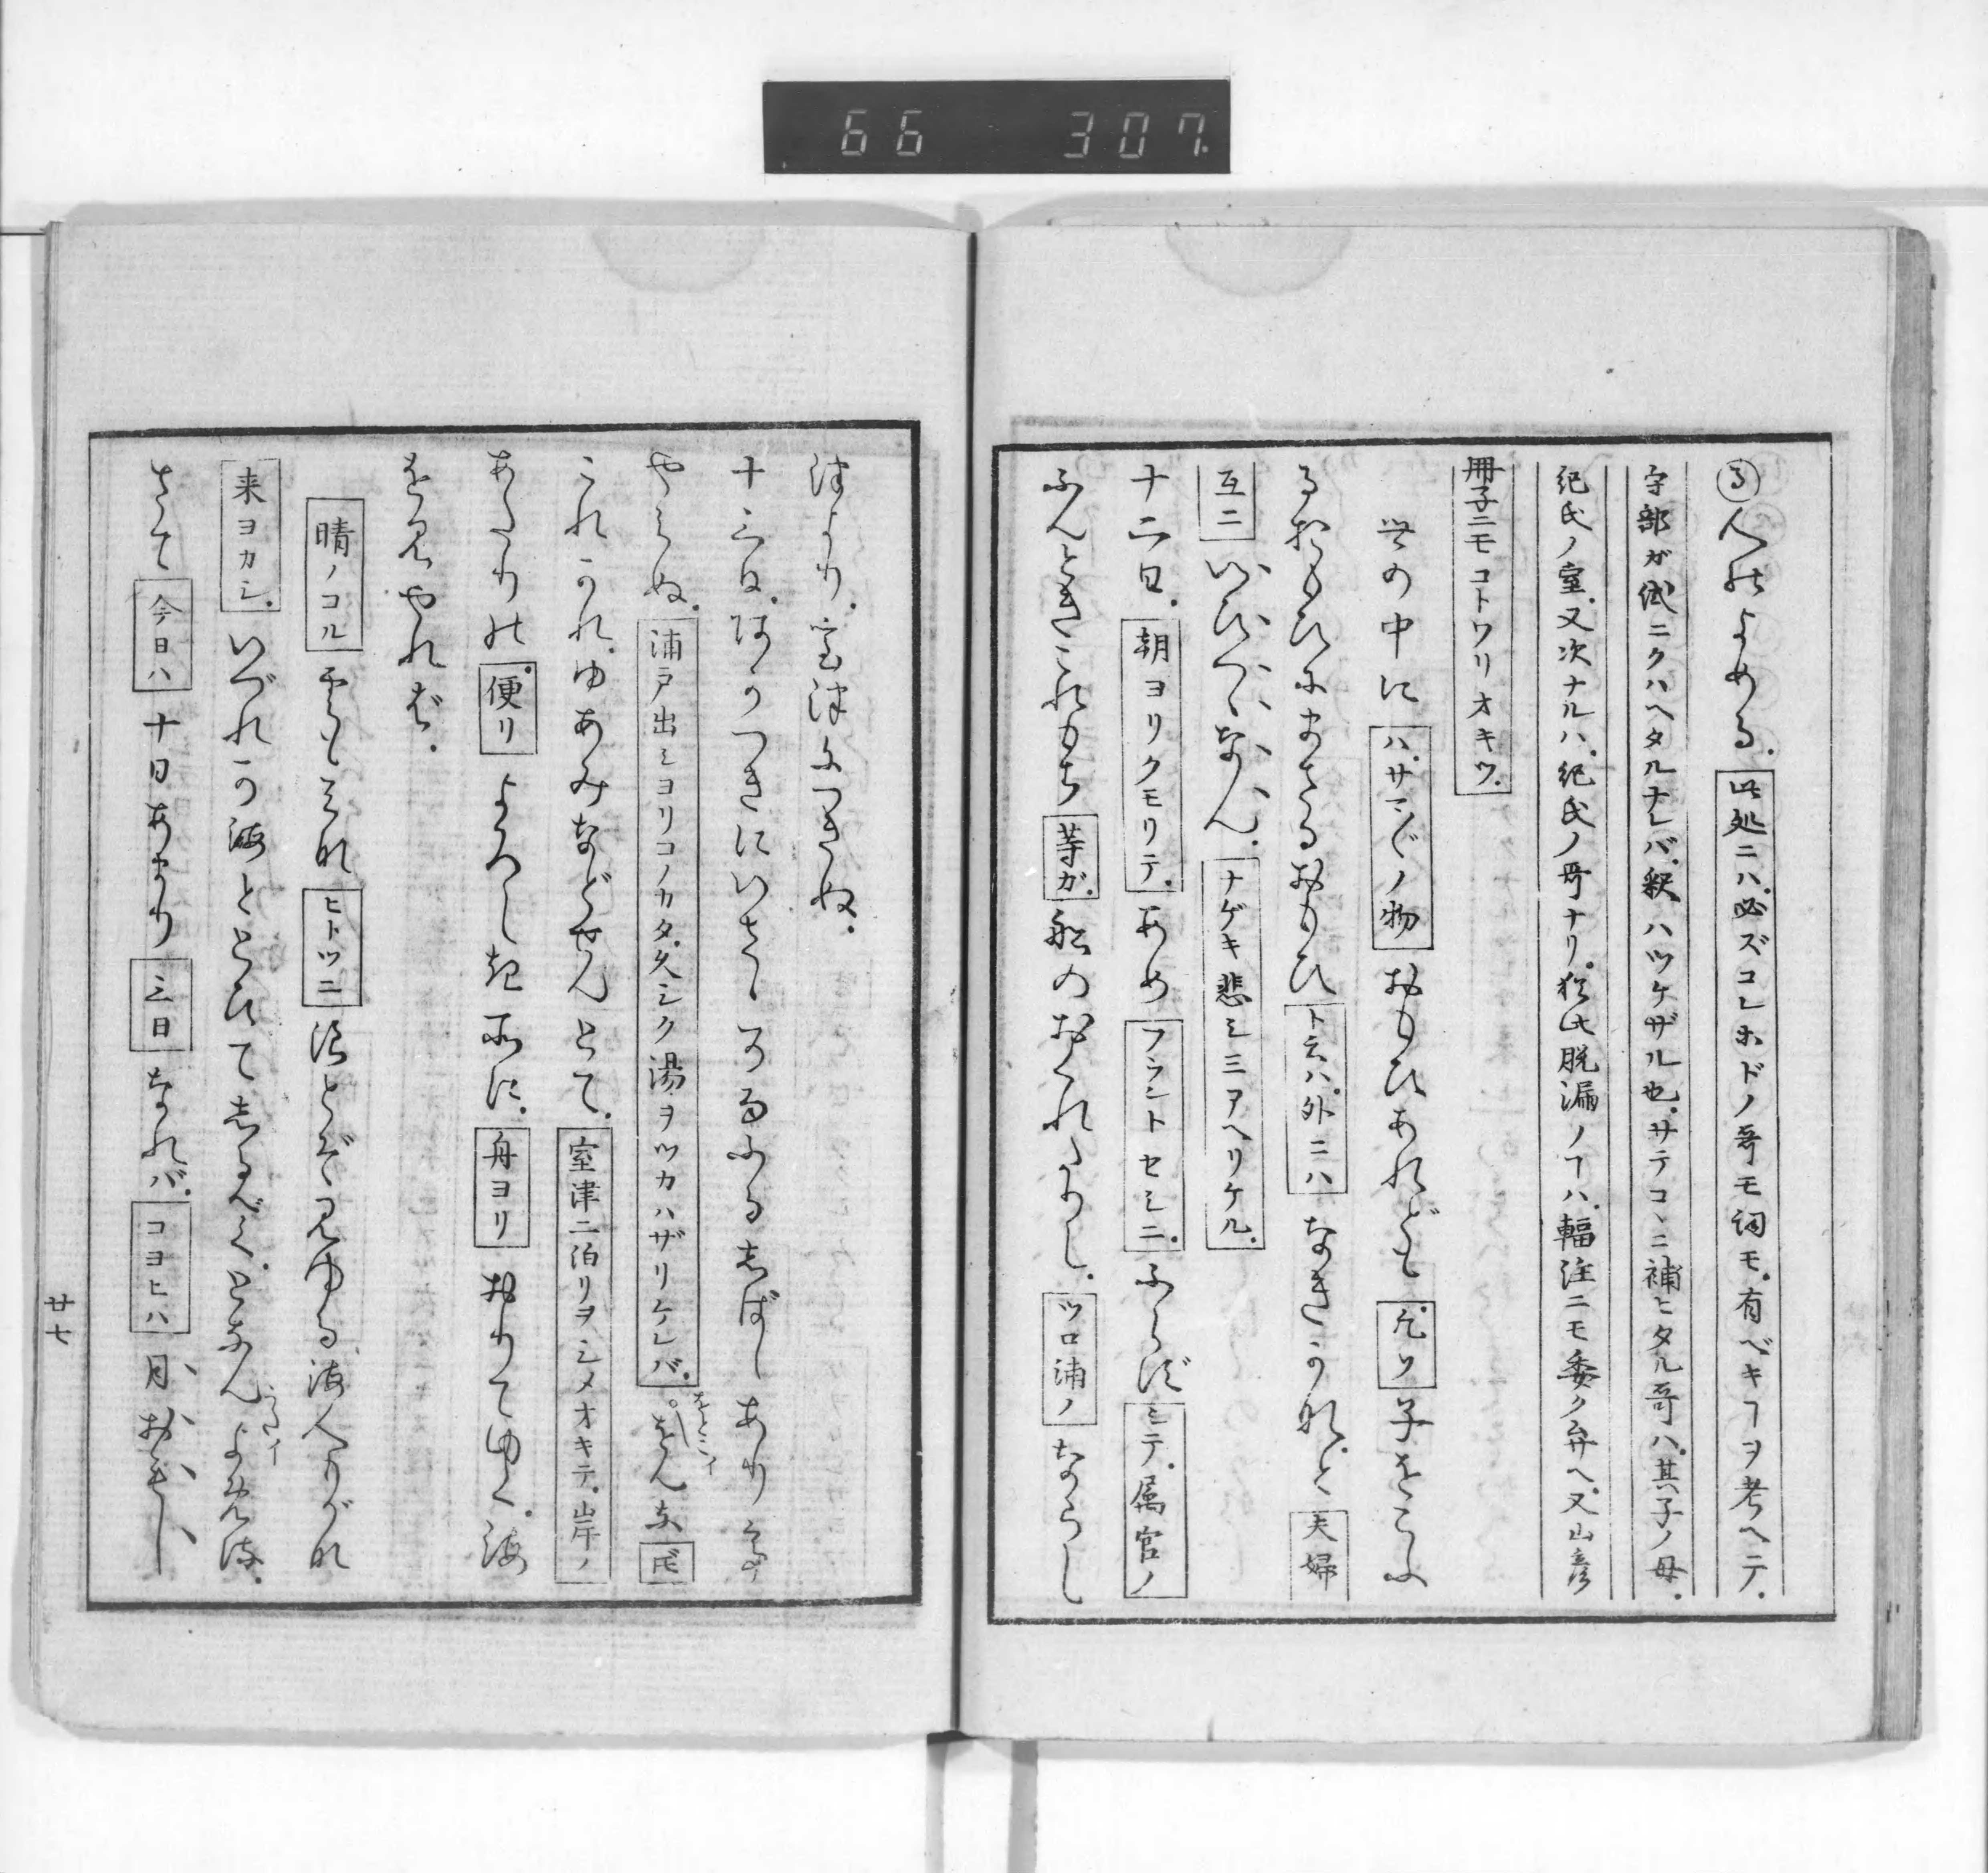 66 307.
る人のよめる。此処ニハ必ズコレホドノ哥モ詞モ有ベキヿヲ考ヘニテ。
宇部ガ俄ニクハヘタルナレバ釈ハツケザル也。サテコヽニ補ヒタル哥ハ其子ノ母。
紀氏ノ室又次ナルハ紀氏ノ哥ナリ。猶此脱漏ノヿハ輻注ニモ委ク弁ヘ又山彦
冊子ニモコトワリオキツ。
世の中にハサマ〴〵ノ物おもひあれども凡ソ子をこふ
るおもひにまさるおもひト云ハ外ニハなきかなと夫婦
互ニいひつゝなん。ナゲキ悲シミアヘリケル。
十二日。朝ヨリクモリテ。あめフラントセシニ。ふらずシテ。属官ノ
ふんときこれもち等ガ。船のおくれたりし。ツロ浦ノならし
津より。室津につきぬ。
十三日。あかつきにいさゝかあめふるしばしありて
やみぬ。浦戸出シヨリコノカタ久シク湯ヲツカハザリケレバ。をんな
これかれ。ゆあみなどせんとて。室津ニ泊リヲシメオキテ。岸ノ
あたりの便リよろしき所に。舟ヨリおりてゆく。海
を見やれば。
晴ノコル雲もみなヒトツニ浪とぞ見ゆる海人もがな
来ヨカシ。いづれか海ととひてしるべくとなんよめる。
さて今日ハ十日あまり三日なれバ。コヨヒハ月おもし
廿七